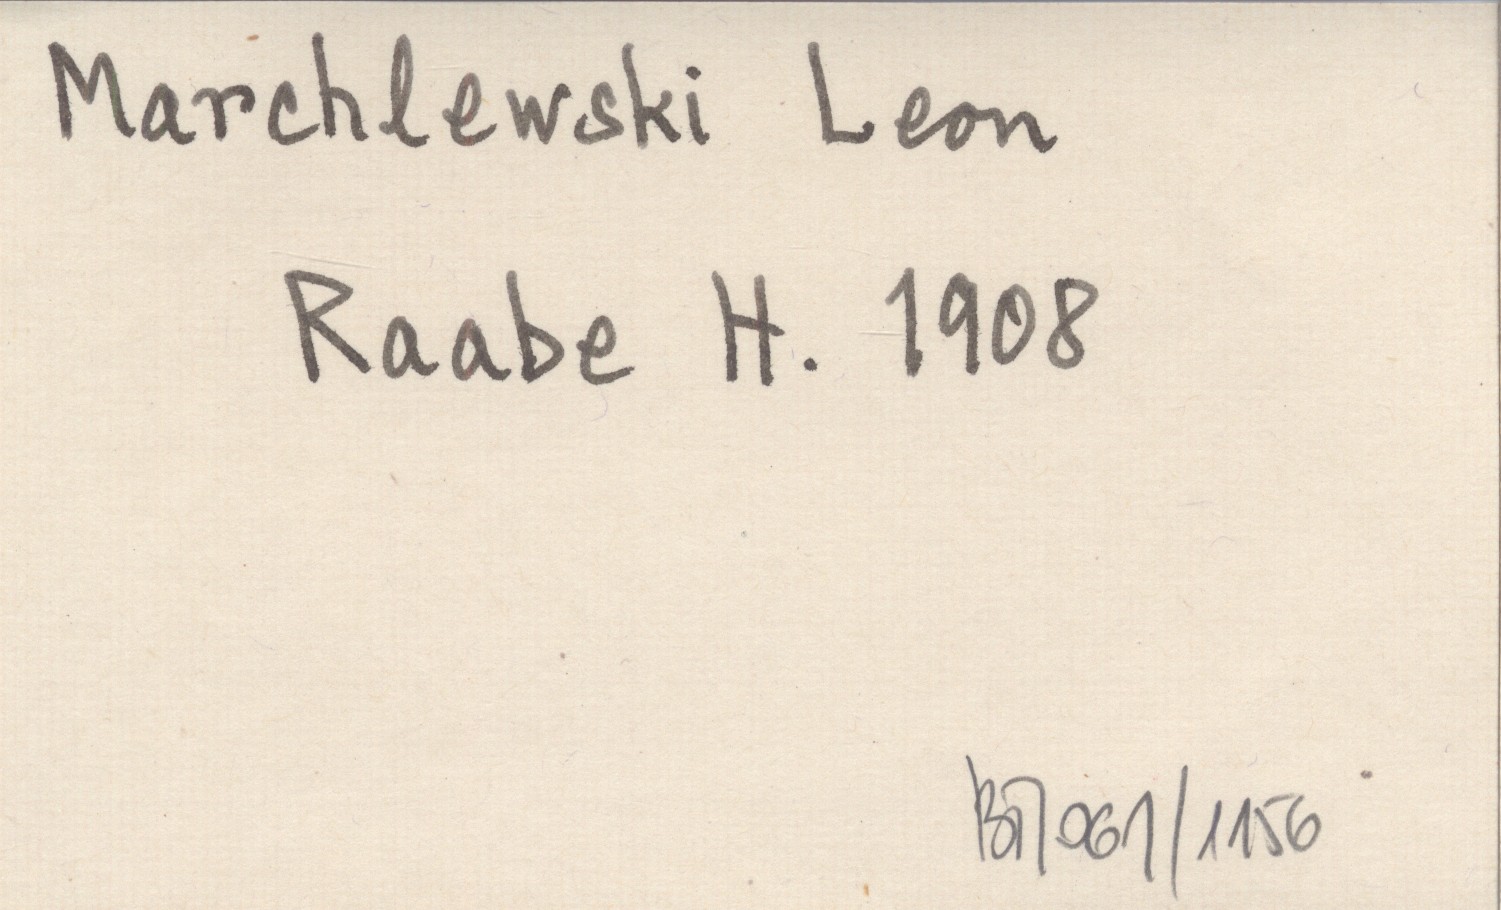 Marchlewski Leon
Raabe H. 1908
061/1156